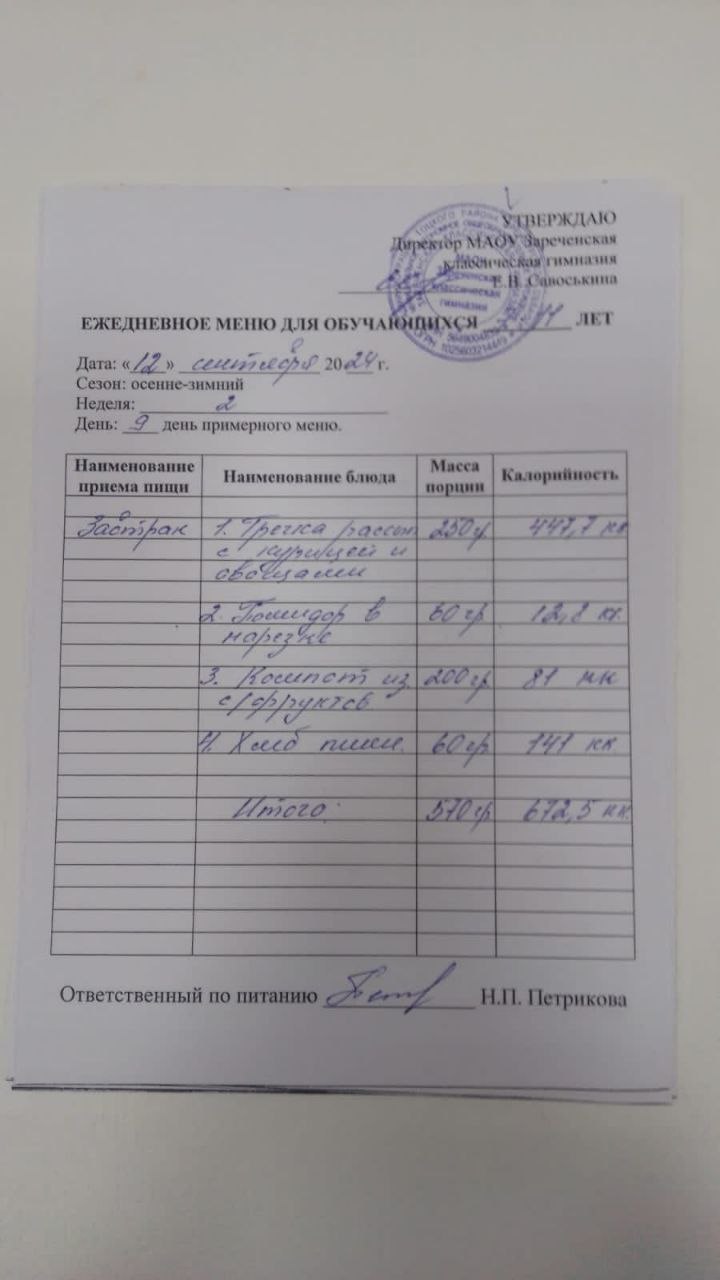 УТВЕРЖДАЮ
Директор МАОУ Зареченская
классическая гимназия
Е.Н. Савоськина
ЕЖЕДНЕВНОЕ МЕНЮ ДЛЯ ОБУЧАЮЩИХСЯ 11 ЛЕТ
Дата: «12» сентября 2024 г.
Сезон: осенне-зимний
Неделя: 2
День: 9 день примерного меню.
Наименование приема пищи Наименование блюда Масса порции Калорийность
Завтрак 1. Гречка рассып 250 гр 447,7 кк
с курицей и
овощами
2. Помидор в 60 гр 12,8 кк.
нарезке
3. Компот из 200 гр 81 кк
с/фруктов
4. Хлеб пшен. 60 гр 141 кк
Итого: 570 гр 672,5 кк.
Ответственный по питанию Н.П. Петрикова